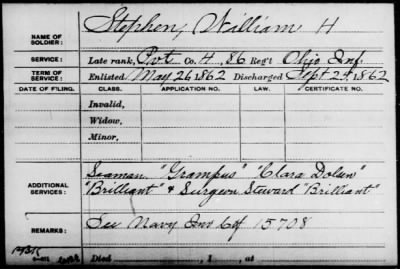 Stephen, William H
NAME OF SOLDIER:
SERVICE: Late rank, Pvt Co. H, 86 Reg't Ohio Inf.
TERM OF SERVICE: Enlisted May 26 1862 Discharged Sept 24, 1862
DATE OF FILING. CLASS. APPLICATION NO. LAW. CERTIFICATE NO.
Invalid,
Widow,
Minor,
ADDITIONAL SERVICES: Seaman "Grampus" "Clara Dolsen"
"Brilliant" & Surgeon Steward "Brilliant"
REMARKS: See Navy Inv Ctf 15708
Died , 1 , at